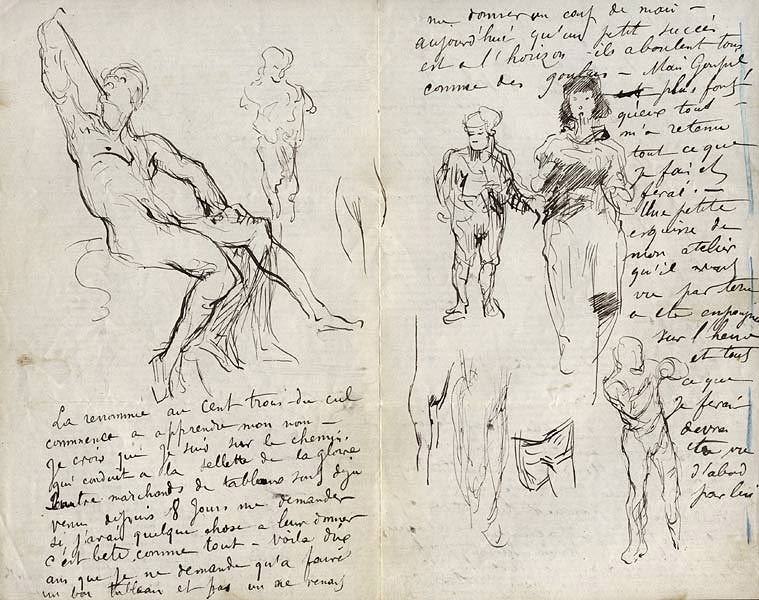 La renommée au cent trous du cul
commence a apprendre mon nom -
Je crois que je suis sur le chemin
qui conduit a la sellette de la gloire
quatre marchands de tableaux sont déja
venu depuis 8 jours me demander
si j'avais quelque chose a leur donner
c'est bete comme tout - voila dix
ans que je ne demande qu'a
un bon tableau et pas un ne venait
me donner un coup de main -
aujourd'hui qu'un petit succés
est a l'horizon - ils aboulent tous
comme des goulus - Mais Goupil
plus fort
qu'eux tous -
m'a retenu
tout ce que
je fais et
ferai. -
Une petite
esquisse de
mon atelier
qu'il avait
vu par terre
a été empoignée
sur l'heure
et tout
ce que
je ferai
devra
etre vu
d'abord
par lui